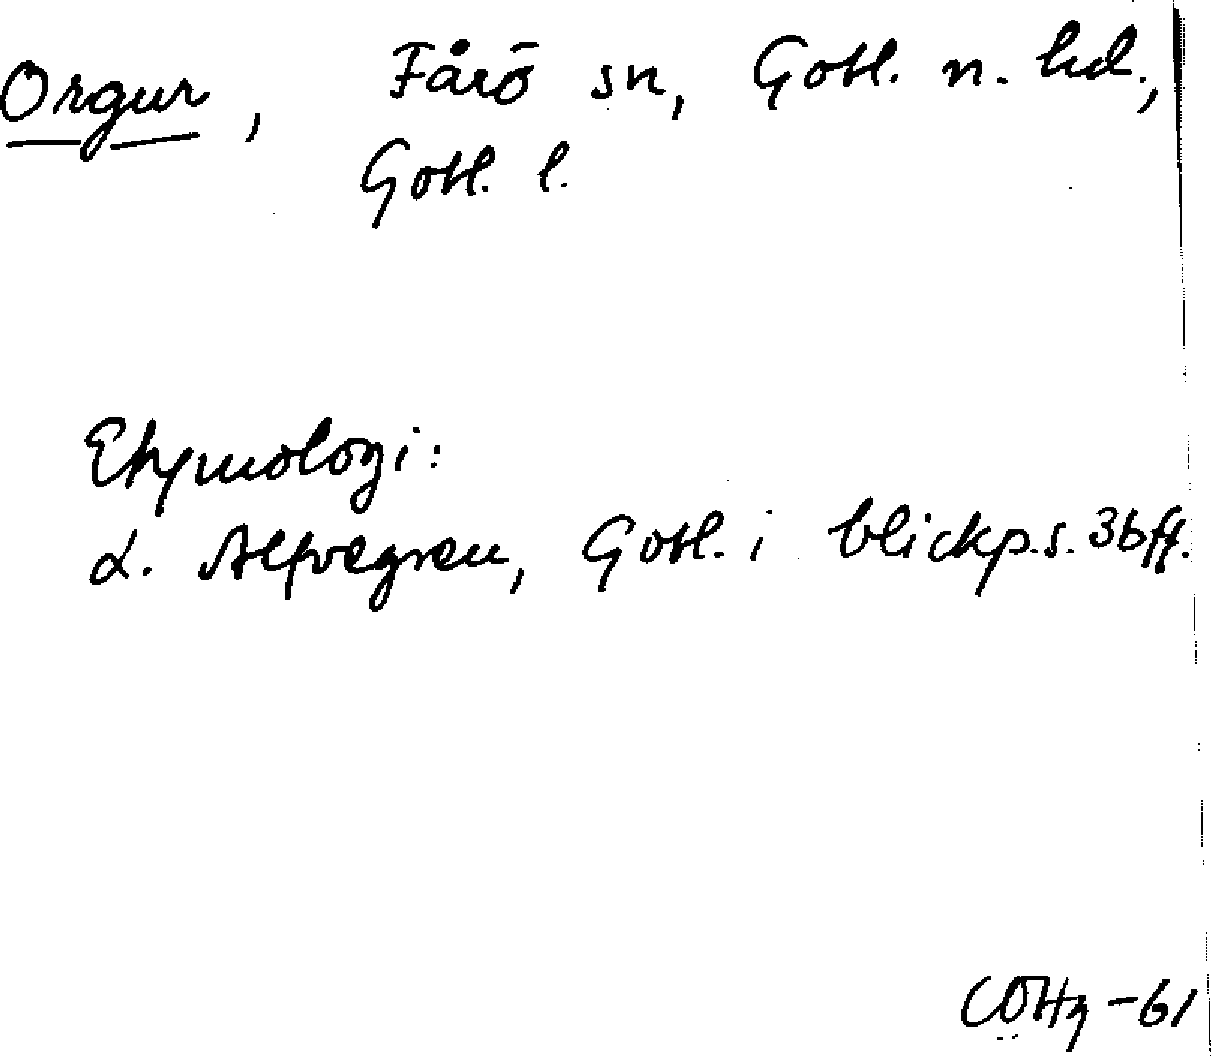 Orgur, Fårö sn, Gotl. n. hd.,
Gotl. l.
Etymologi:
L. Alfvegren, Gotl. i blickp. s. 36 ff.